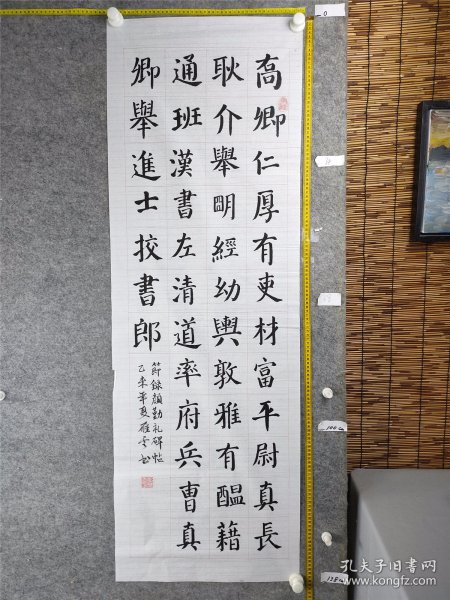 高卿仁厚有吏材富平尉真長
耿介舉明經幼輿敦雅有醞藉
通班漢書左清道率府兵曹真
卿舉進士挍書郎
節錄顏勤礼碑帖
乙未年夏雁云书
孔夫子旧书网
www.kongfz.com